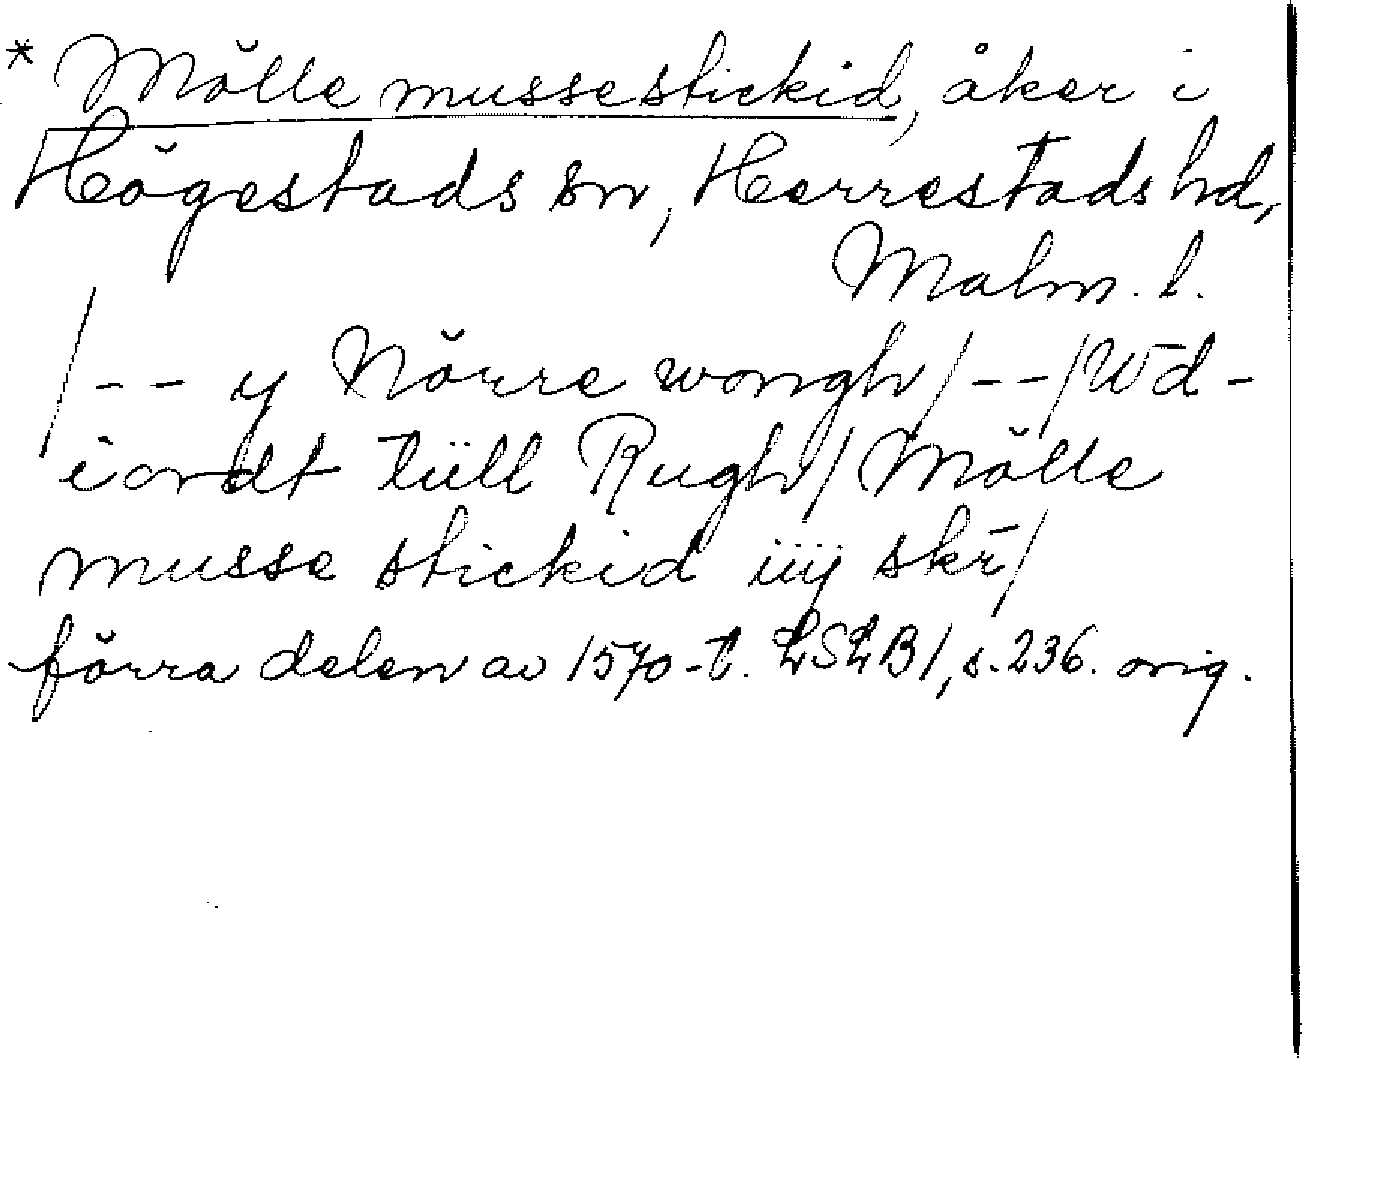 * Mölle mussestickid, åker i
Högestads sn, Herrestads hd,
Malm. l.
/-- y Nörre wongh/--/Wd-
iordt tiill Rugh/ Mölle
musse stickid iiij skr̄/
förra delen av 1570-t. LSLB1, s. 236. orig.